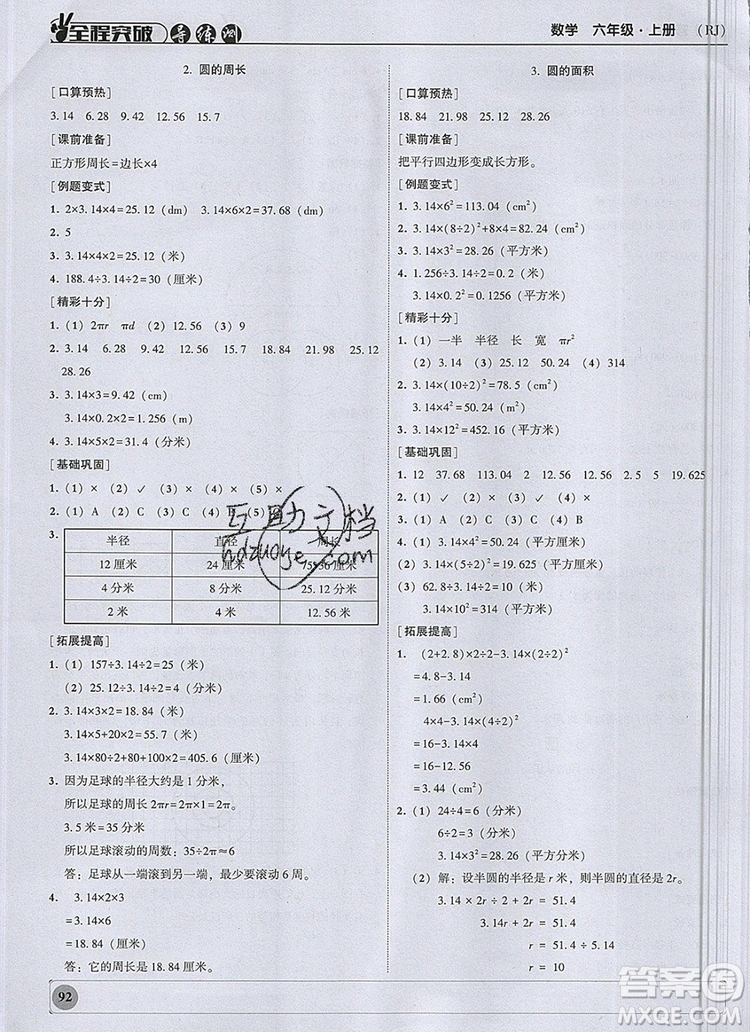 全程突破 导练测 数学 六年级·上册 (RJ)
2. 圆的周长
[口算预热]
3.14 6.28 9.42 12.56 15.7
[课前准备]
正方形周长=边长×4
[例题变式]
1. 2×3.14×4=25.12 (dm) 3.14×6×2=37.68 (dm)
2. 5
3. 3.14×4×2=25.12 (米)
4. 188.4÷3.14÷2=30 (厘米)
[精彩十分]
1. (1) 2πr πd (2) 12.56 (3) 9
2. 3.14 6.28 9.42 12.56 15.7 18.84 21.98 25.12
28.26
3. 3.14×3=9.42 (cm)
3.14×0.2×2=1.256 (m)
4. 3.14×5×2=31.4 (分米)
[基础巩固]
1. (1) × (2) ✓ (3) × (4) × (5) ×
2. (1) A (2) C (3) C (4) A (5) C
3. 半径 直径 周长
12 厘米 24 厘米 75.36 厘米
4 分米 8 分米 25.12 分米
2 米 4 米 12.56 米
[拓展提高]
1. (1) 157÷3.14÷2=25 (厘米)
(2) 25.12÷3.14÷2=4 (分米)
2. 3.14×3×2=18.84 (厘米)
3.14×5+20=35.7 (厘米)
3.14×80÷2+80+100×2=405.6 (厘米)
3. 因为足球的半径大约是 1 分米,
所以足球的周长 2πr=2π×1=2π。
3.5 米=35 分米
所以足球滚动的周数:35÷2π≈6
答:足球从一端滚到另一端,大约滚动 6 周。
4. 3.14×2×3
=3.14×6
=18.84 (厘米)
答:它的周长是 18.84 厘米。
92
3. 圆的面积
[口算预热]
18.84 21.98 25.12 28.26
[课前准备]
把平行四边形变成长方形。
[例题变式]
1. 3.14×6²=113.04 (cm²)
2. 3.14×(8÷2)²+8×4=82.24 (cm²)
3. 3.14×3²=28.26 (平方米)
4. 1.256÷3.14÷2=0.2 (厘米)
3.14×0.2²=0.1256 (平方厘米)
[精彩十分]
1. (1) 一半 半径 长 宽 πr²
(2) 3.14 (3) 25.12 50.24 (4) 314
2. 3.14×(10÷2)²=78.5 (cm²)
3.14×4²=50.24 (cm²)
3. 3.14×12²=452.16 (平方米)
[基础巩固]
1. 12 37.68 113.04 5 15.7 2.5 5 19.625
2. (1) × (2) ✓ (3) ×
3. (1) A (2) C (3) A (4) B (5) C
4. (1) 3.14×4²=50.24 (平方厘米)
(2) 3.14×(5÷2)²=19.625 (平方分米)
(3) 62.8÷3.14÷2=10 (分米)
3.14×10²=314 (平方分米)
[拓展提高]
1. (2+2.8)×(2×2)÷2-3.14×(2×2÷2)²÷2
=4.8-3.14
=1.66 (cm²)
4×4-3.14×(4÷2)²
=16-3.14×4
=16-12.56
=3.44 (cm²)
2. (1) 24÷4=6 (分米)
6÷2=3 (分米)
3.14×3²=28.26 (平方分米)
(2) 解:设半圆的半径是 r 米,则半圆的直径是 2r 米。
3.14×r×2÷2+2r=51.4
3.14r+2r=51.4
r=51.4÷5.14
r=10
互助文档
hdzuoye.com
答案圈
MXQE.COM